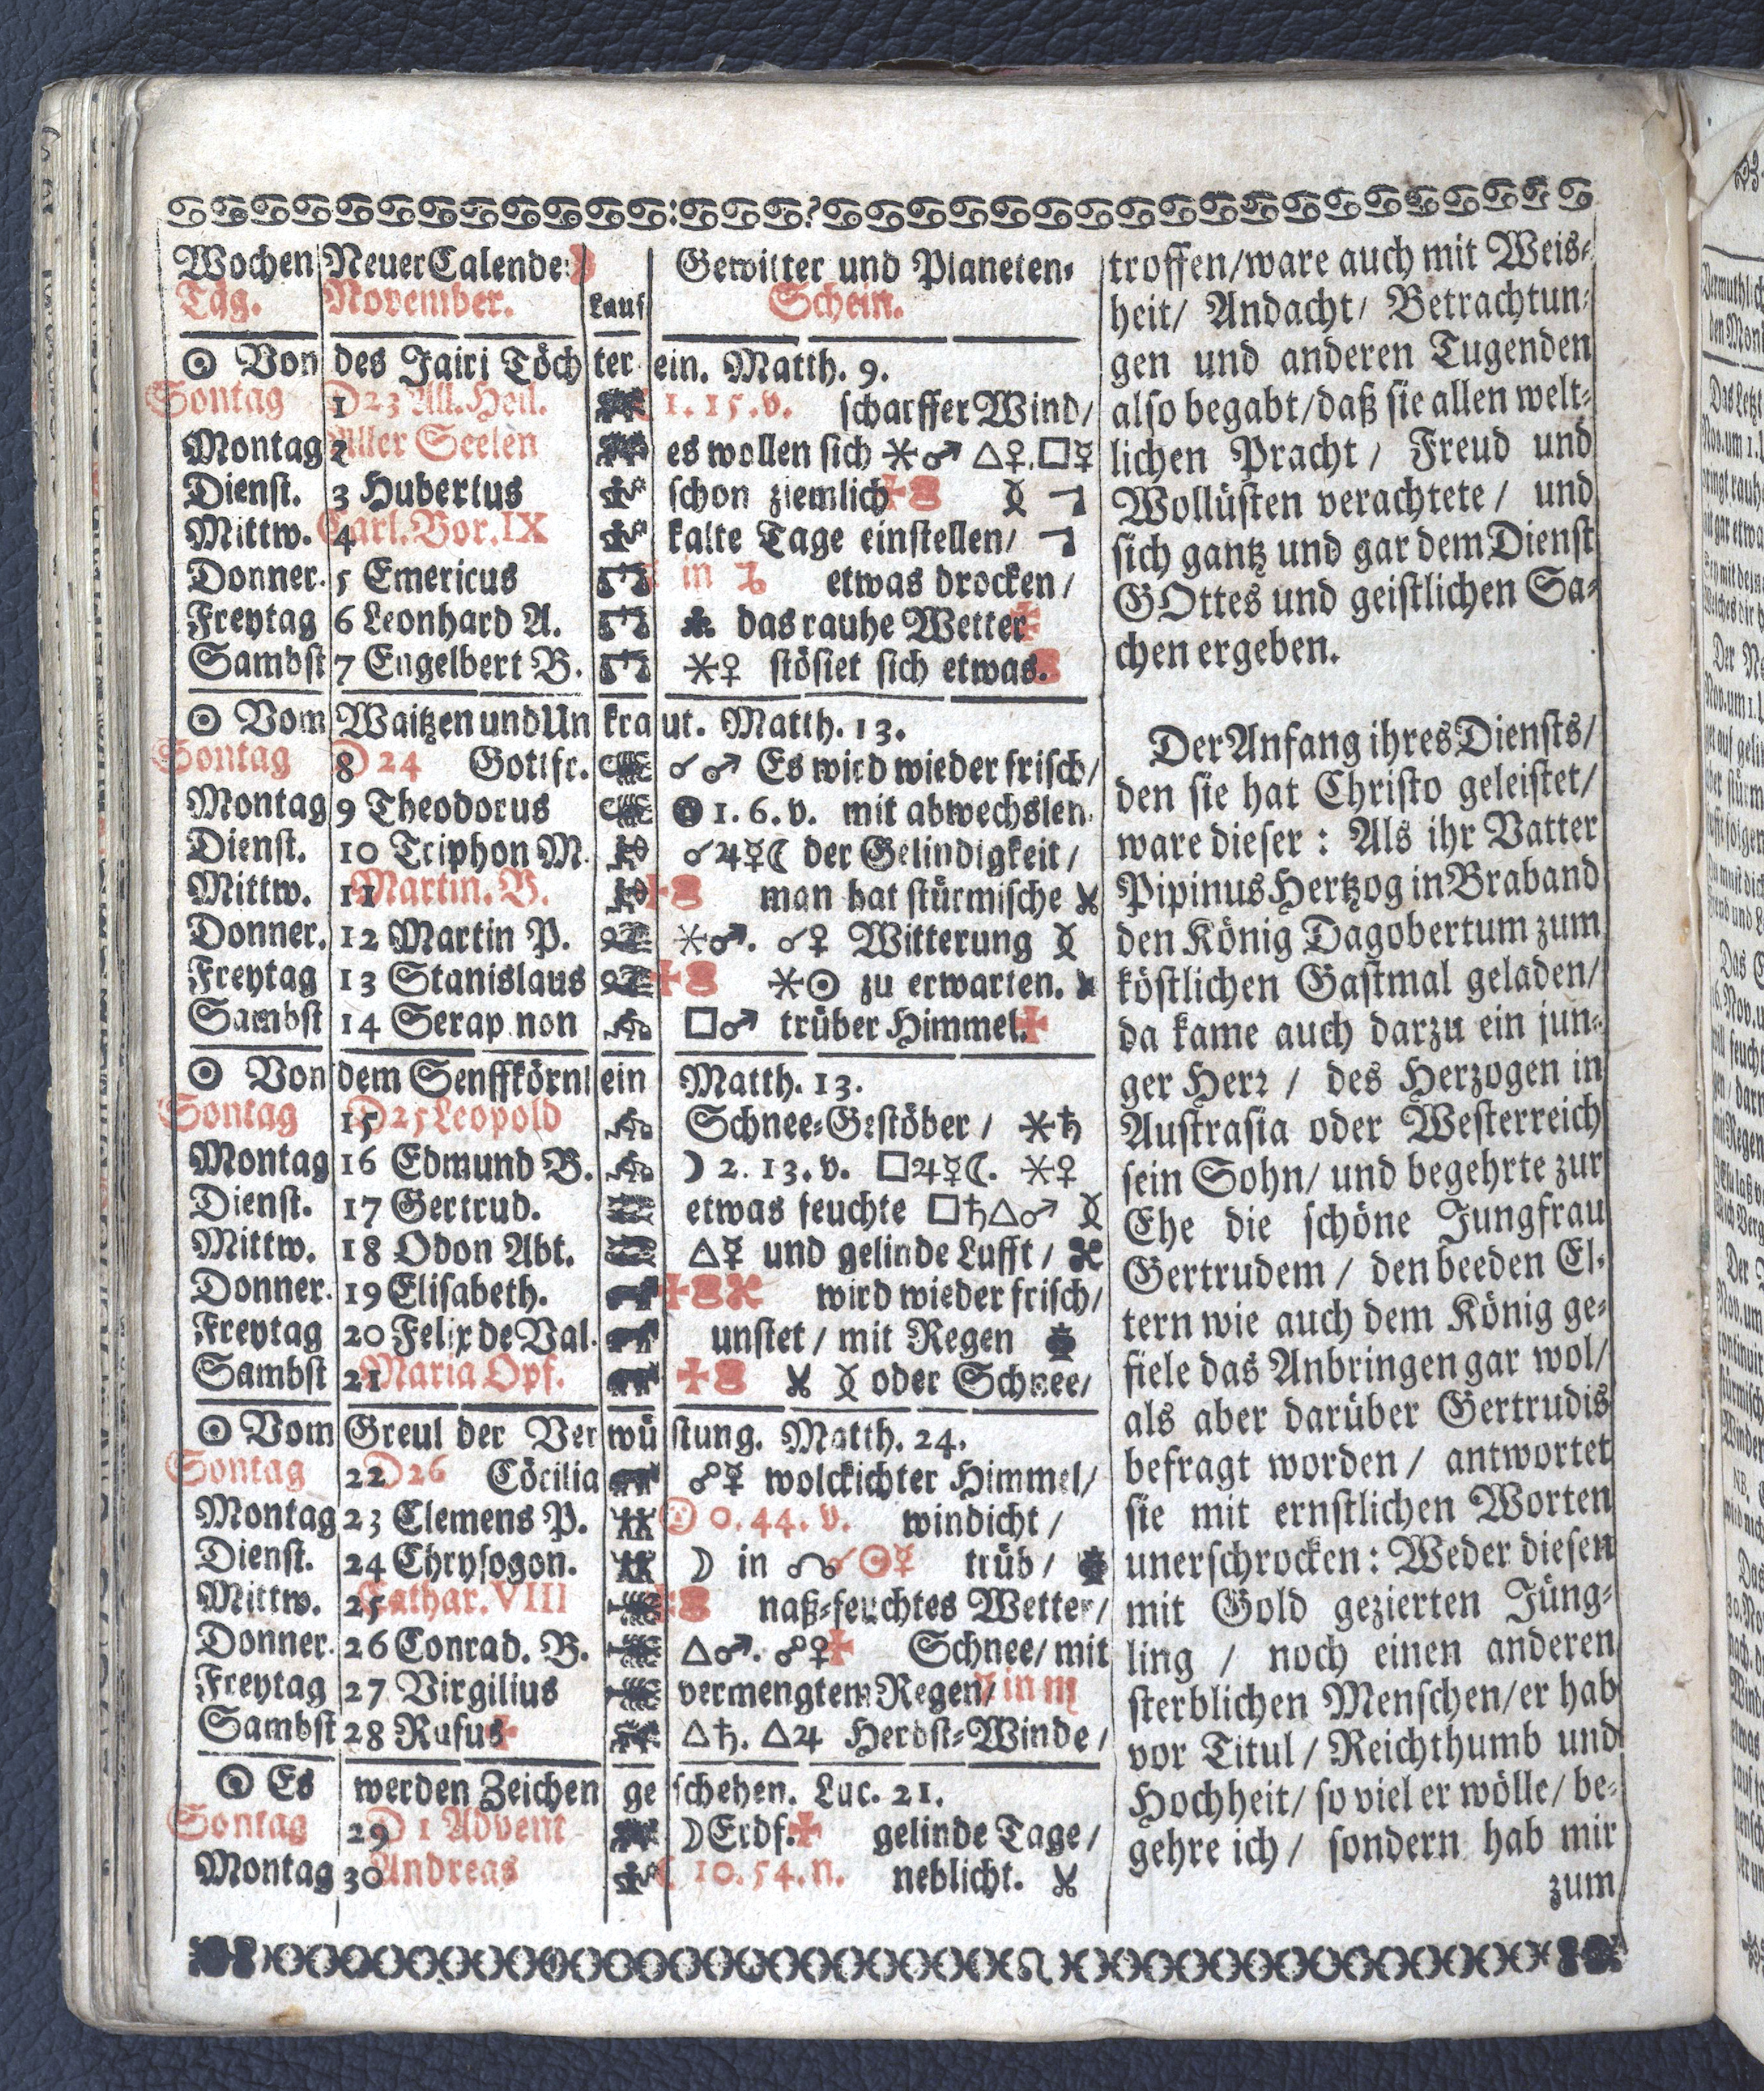 Wochen Neuer Calender Gewitter und Planeten-
Tag. November. Lauf Schein.
☉ Von des Jairi Töch ter ein. Matth. 9.
Sontag 1 D 23 All. Heil. 1. 15. v. scharffer Wind/
Montag 2 Aller Seelen es wollen sich ⚹♂ △♀.□☿
Dienst. 3 Hubertus schon ziemlich
Mittw. 4 Carl. Bor. IX kalte Tage einstellen/
Donner. 5 Emericus in ♑ etwas drocken/
Freytag 6 Leonhard A. das rauhe Wetter
Sambst 7 Engelbert B. ⚹♀ stösset sich etwas.
☉ Vom Waitzen und Un kra ut. Matth. 13.
Sontag 8 D 24 Gottfr. ☌♂ Es wird wieder frisch/
Montag 9 Theodorus 1. 6. v. mit abwechslen
Dienst. 10 Triphon M. ☌♃☿☾ der Gelindigkeit/
Mittw. 11 Martin. B. man hat stürmische
Donner. 12 Martin P. ⚹♂. ☌♀ Witterung
Freytag 13 Stanislaus ⚹☉ zu erwarten.
Sambst 14 Serap non □♂ trüber Himmel.
☉ Von dem Senffkörnl ein Matth. 13.
Sontag 15 D 25 Leopold Schnee-Gestöber/ ⚹♄
Montag 16 Edmund B. ☽ 2. 13. v. □♃☿☾. ⚹♀
Dienst. 17 Gertrud. etwas feuchte □♄△♂
Mittw. 18 Odon Abt. △☿ und gelinde Lufft/
Donner. 19 Elisabeth. wird wieder frisch/
Freytag 20 Felix de Val. unstet/ mit Regen
Sambst 21 Maria Opf. oder Schnee/
☉ Vom Greul der Ver wü stung. Matth. 24.
Sontag 22 D 26 Cöcilia ☍☿ wolckichter Himmel/
Montag 23 Clemens P. 0. 44. v. windicht/
Dienst. 24 Chrysogon. ☽ in ☊ ☌☉☿ trüb/
Mittw. 25 Cathar. VIII naß-feuchtes Wetter/
Donner. 26 Conrad. B. △♂. ☍♀ Schnee/ mit
Freytag 27 Virgilius vermengtem Regen/ in ♏
Sambst 28 Rufus △♄. △♃ Herbst-Winde/
☉ Es werden Zeichen ge schehen. Luc. 21.
Sontag 29 D 1 Advent ☽Erdf. gelinde Tage/
Montag 30 Andreas ☾ 10. 54. n. neblicht.
troffen/ware auch mit Weis-
heit/ Andacht/ Betrachtun-
gen und anderen Tugenden
also begabt/daß sie allen welt-
lichen Pracht/ Freud und
Wollüsten verachtete/ und
sich gantz und gar dem Dienst
GOttes und geistlichen Sa-
chen ergeben.
Der Anfang ihres Diensts/
den sie hat Christo geleistet/
ware dieser: Als ihr Vatter
Pipinus Hertzog in Braband
den König Dagobertum zum
köstlichen Gastmal geladen/
da kame auch darzu ein jun-
ger Herr/ des Herzogen in
Austrasia oder Westerreich
sein Sohn/ und begehrte zur
Ehe die schöne Jungfrau
Gertrudem/ den beeden El-
tern wie auch dem König ge-
fiele das Anbringen gar wol/
als aber darüber Gertrudis
befragt worden/ antwortet
sie mit ernstlichen Worten
unerschrocken: Weder diesen
mit Gold gezierten Jüng-
ling/ noch einen anderen
sterblichen Menschen/er hab
vor Titul/ Reichthumb und
Hochheit/ so viel er wölle/ be-
gehre ich/ sondern hab mir
zum